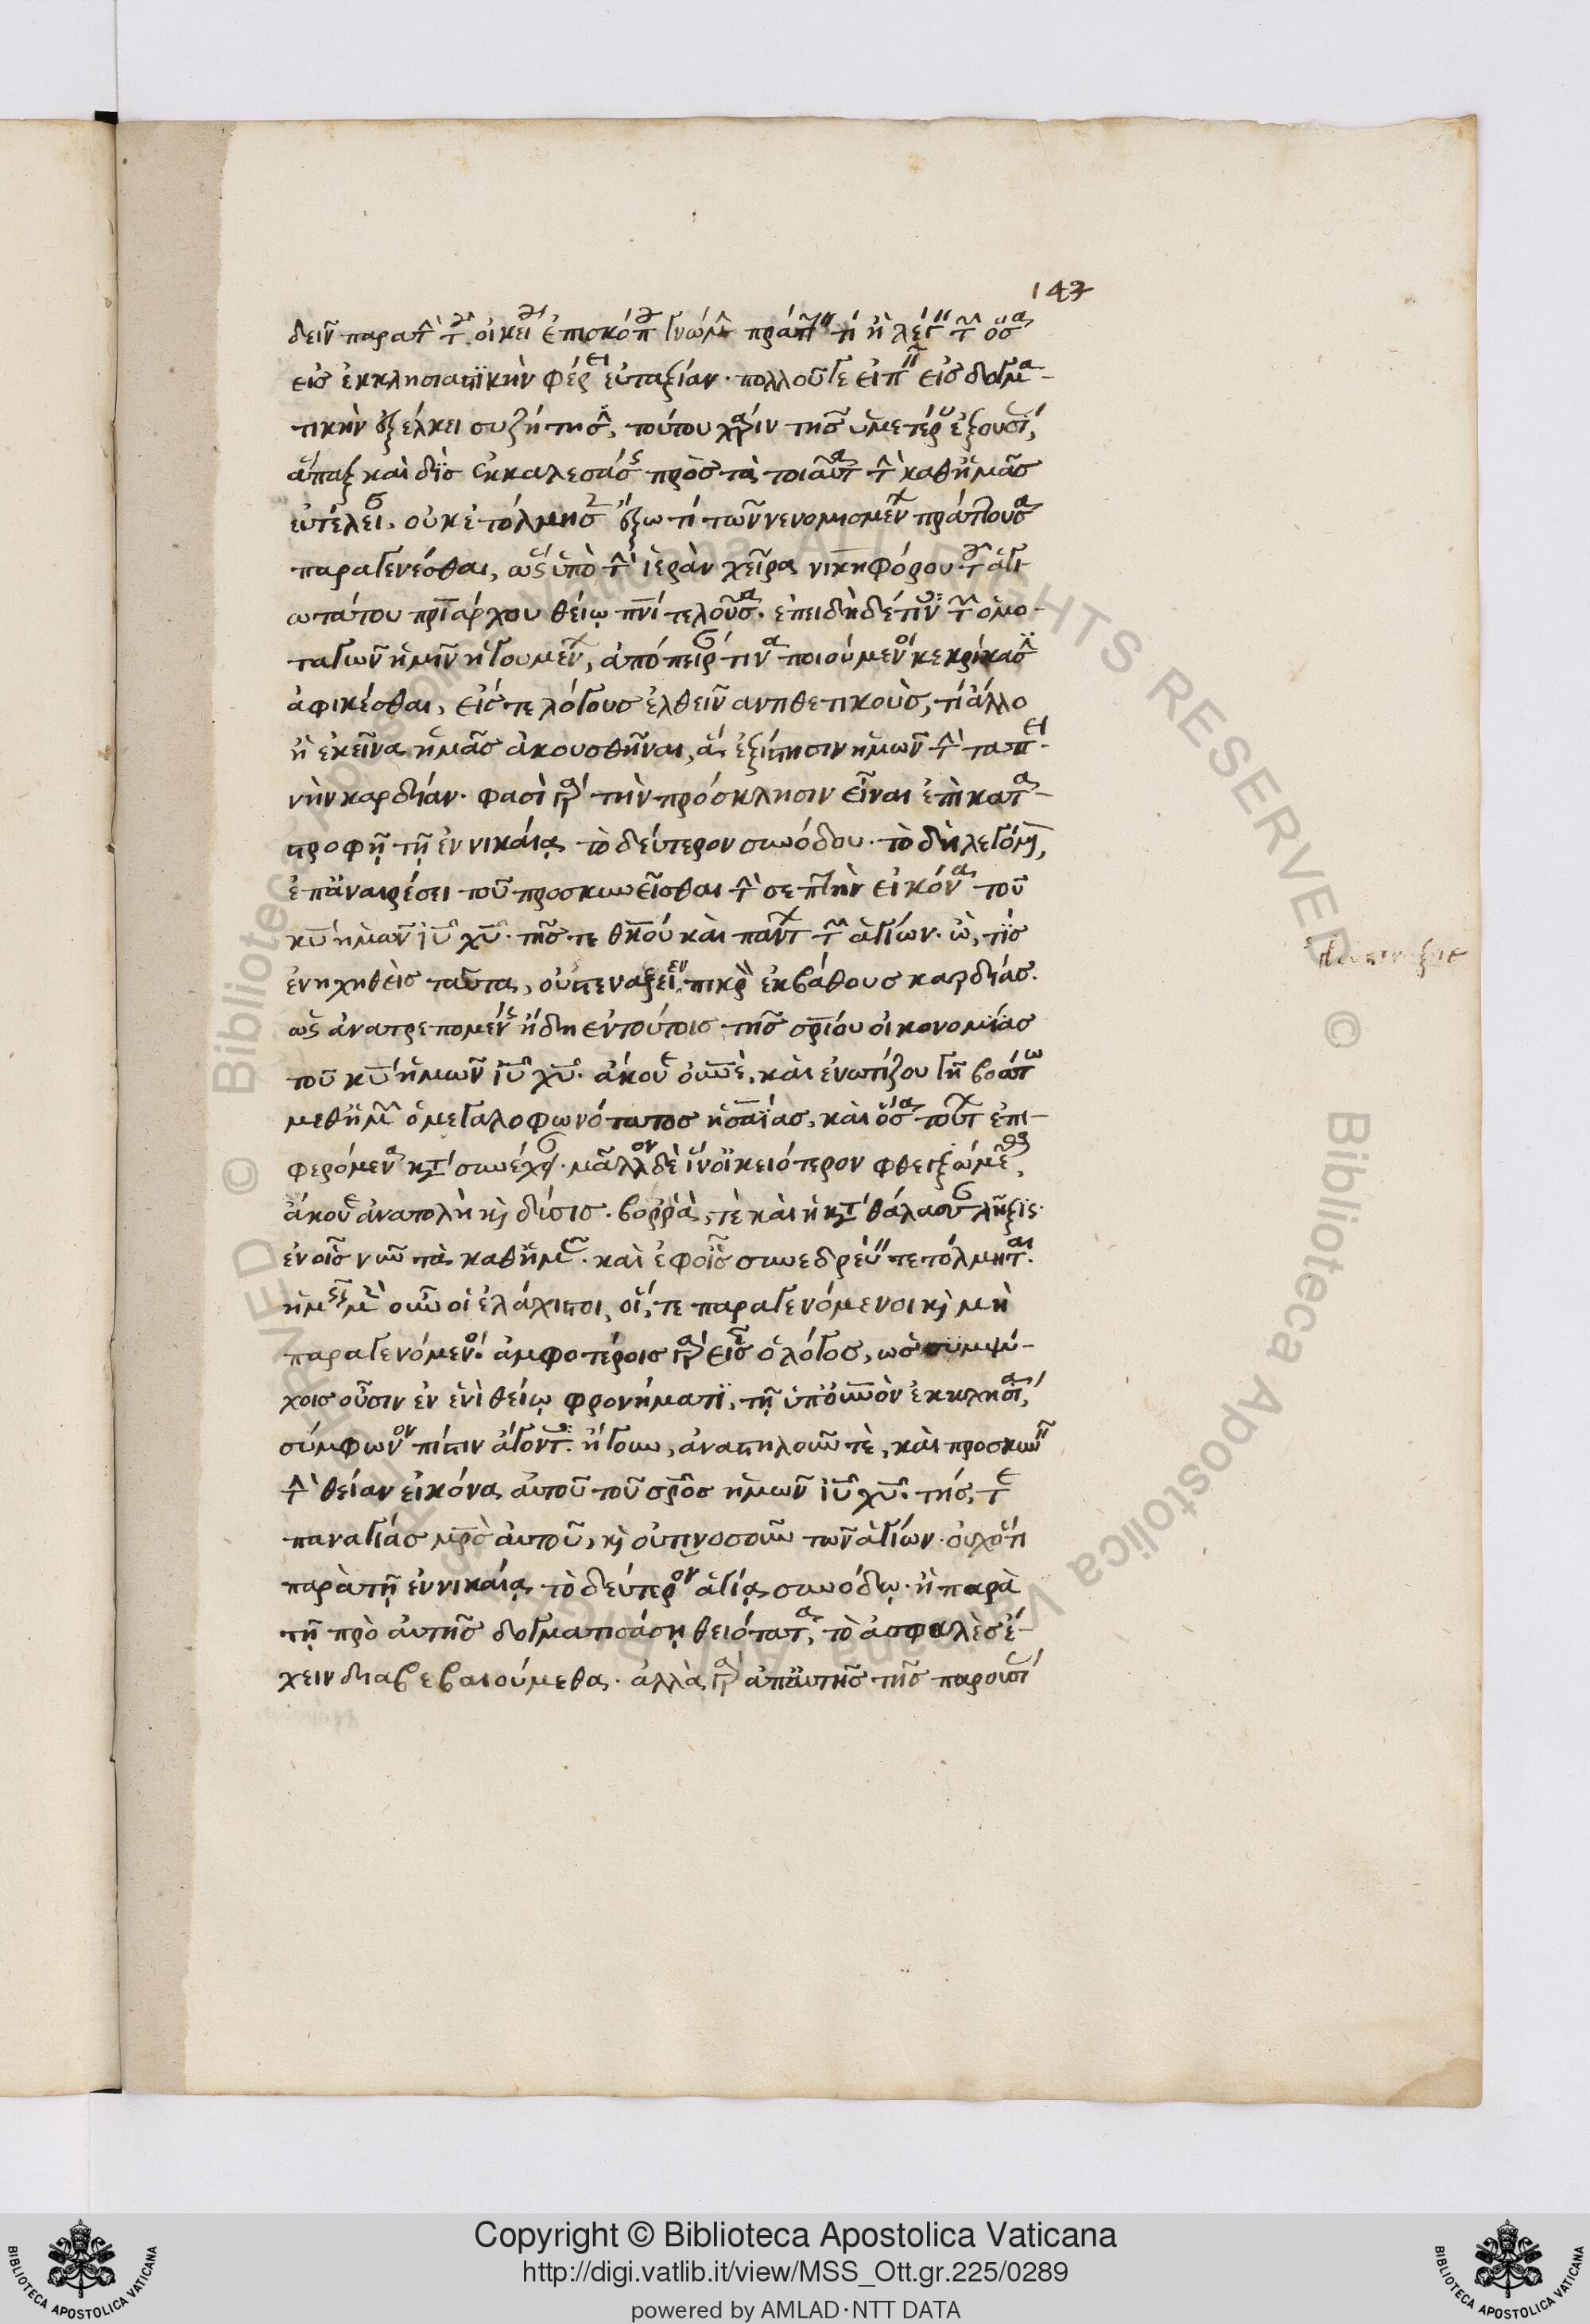 147
δεῖν παρὰ τὴν τοῦ οἰκείου ἐπισκόπου γνώμην πράττειν τι ἢ λέγειν τῶν ὅσα
εἰς ἐκκλησιαστϊκὴν φέρει εὐταξίαν. πολλοῦ γε εἰπεῖν εἰς δογμα-
τικὴν ἐξέλκει συζήτησιν, τούτου χάριν τῆς ὑμετέρας ἐξουσίας,
ἅπαξ καὶ δὶς ἐκκαλεσάσης πρὸς τὰ τοιαῦτα τὴν καθ ἡμᾶς
εὐτέλειαν, οὐκ ἐτόλμησεν ἔξω τί τῶν νενομισμένων πράττουσα
παραγενέσθαι, ὡς ὑπὸ τὴν ἱερὰν χεῖρα νικηφόρου τοῦ ἁγι-
ωτάτου πριάρχου θείῳ πνι τελοῦσα. ἐπειδὴ δέ τινες τῶν ὁμο-
ταγῶν ἡμῖν ἡγουμένων, ἀπόπειράν τινα ποιούμενοι κεκρίκασιν
ἀφικέσθαι, εἴς τε λόγους ἐλθεῖν ἀντιθετικοὺς, τί ἄλλο
ἢ ἐκεῖνα ἡμᾶς ἀκουσθῆναι, ἃ ἐξίστησιν ἡμῶν τὴν ταπει-
νὴν καρδίαν. φασὶ γὰρ τὴν πρόσκλησιν εἶναι ἐπὶ κατα-
στροφῇ τῇ ἐν νικαίᾳ τὸ δεύτερον συνόδου. τὸ δὴ λεγόμενον,
ἐπ ἀναιρέσει τοῦ προσκυνεῖσθαι τὴν σεπτὴν εἰκόνα τοῦ
κυ ἡμῶν ιυ χυ. τῆς τε θκου καὶ πάντων τῶν ἁγίων. ὢ, τίς
ἐνηχηθεὶς ταῦτα, οὐ στενάξειεν πικρὸν ἐκ βάθους καρδίας.
ὡς ἀνατρεπομένης ἤδη ἐν τούτοις τῆς σρίου οἰκονομίας
τοῦ κυ ἡμῶν ιυ χυ. ἄκουε οὐνὲ, καὶ ἐνωτίζου γῆ βοάτω
μεθ ἡμῶν ὁ μεγαλοφωνότατος ἡσαΐας, καὶ ὅσα τούτων ἐπι-
φερόμενα κατὰ συνέχειαν. μᾶλλον δὲ ἵν οἰκειότερον φθεγξώμεθα,
ἄκουε ἀνατολὴ κὶ δύσις. βορρᾶ, τὲ καὶ ἡ κατὰ θάλασσαν λῆξις.
ἐν οἷς νῦν τὰ καθ ἡμᾶς. καὶ ἐφ οἷς συνεδρεύειν τετόλμηται.
ἡμεῖς μὲν οὖν οἱ ἐλάχιστοι, οἵ, τε παραγενόμενοι κὶ μὴ
παραγενόμενοι. ἀμφοτέροις γὰρ εἷς ὁ λόγος, ὡς συμψύ-
χοις οὖσιν ἐν ἑνὶ θείῳ φρονήματϊ, τῇ ὑπ οὐνὸν ἐκκλησίᾳ,
σύμφωνον πίστιν ἄγοντες. ἤγουν, ἀναστηλοῦν τὲ, καὶ προσκυνεῖν
τὴν θείαν εἰκόνα αὐτοῦ τοῦ σρος ἡμῶν ιυ χυ. τῆς, τε
παναγίας μρς αὐτοῦ, κὶ οὑτινοσοῦν τῶν ἁγίων. οὐχ ὅτι
παρὰ τῇ ἐν νικαίᾳ τὸ δεύτερον ἁγίᾳ συνόδῳ. ἢ παρὰ
τῇ πρὸ αὐτῆς δογματισάσῃ θειότατα, τὸ ἀσφαλὲς ἔ-
χειν διαβεβαιούμεθα. ἀλλὰ γὰρ ἀπ αὐτῆς τῆς παρουσίας